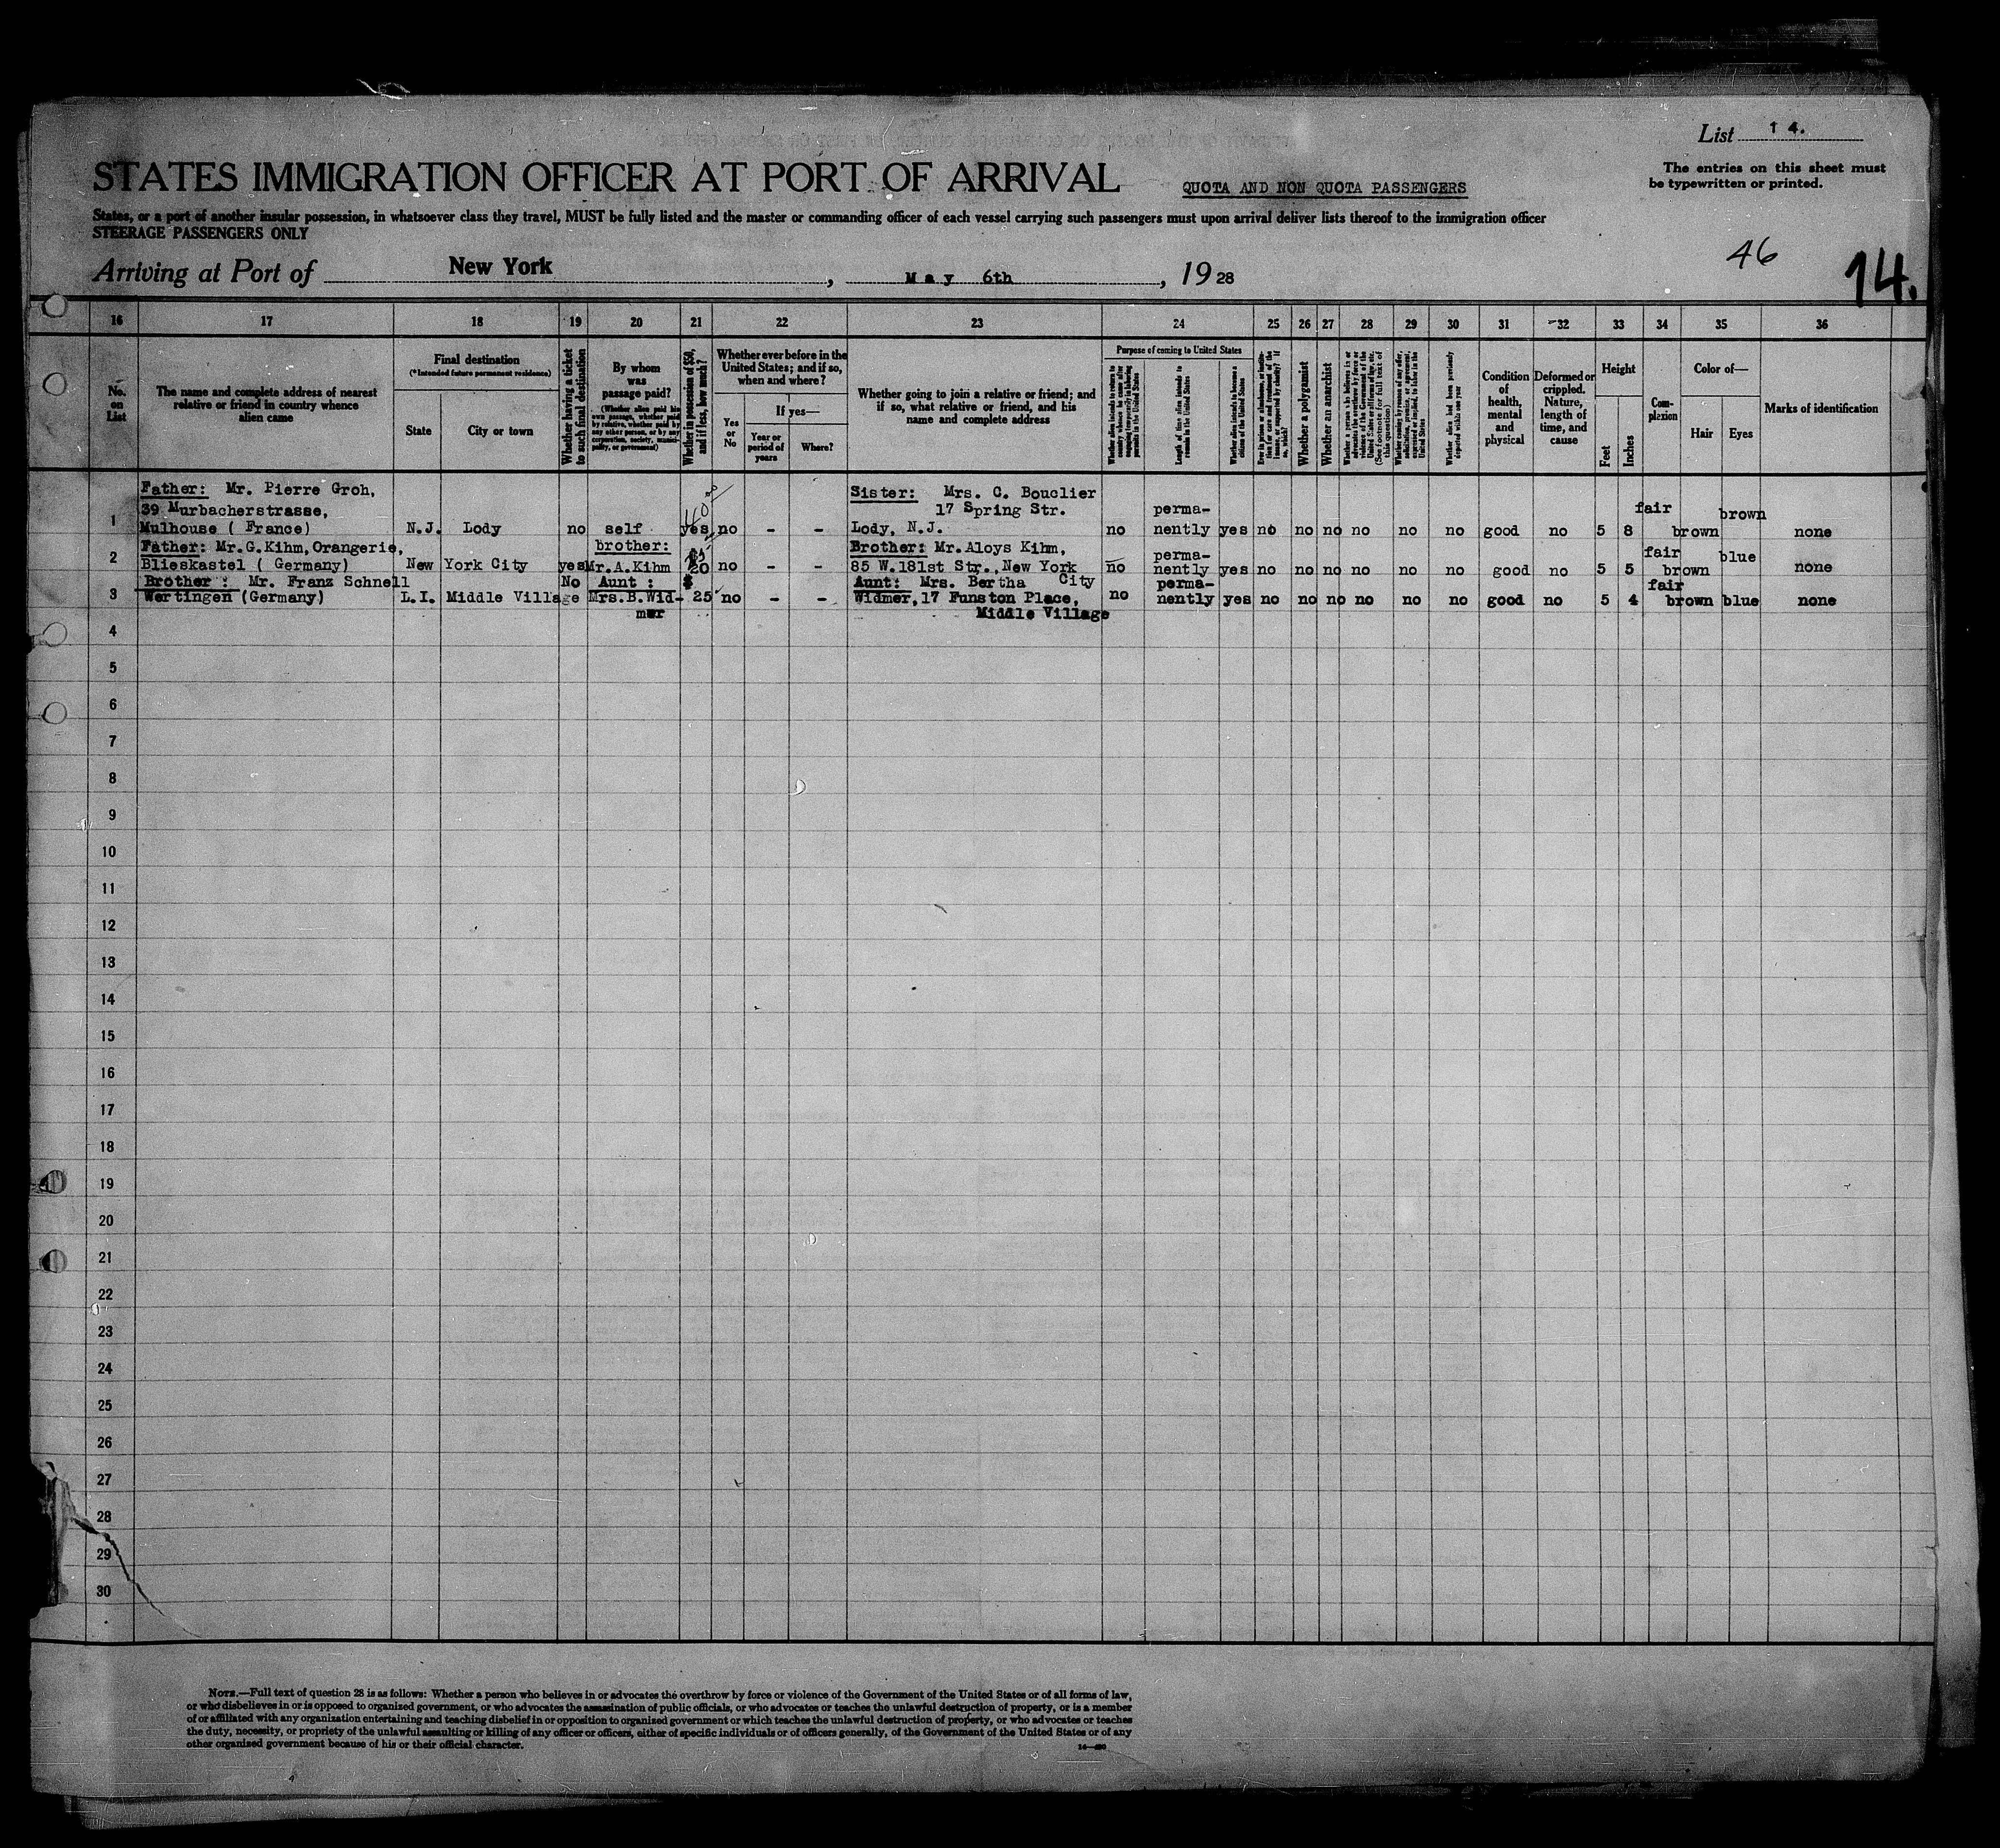 List 14.
The entries on this sheet must
be typewritten or printed.
STATES IMMIGRATION OFFICER AT PORT OF ARRIVAL QUOTA AND NON QUOTA PASSENGERS
States, or a port of another insular possession, in whatsoever class they travel, MUST be fully listed and the master or commanding officer of each vessel carrying such passengers must upon arrival deliver lists thereof to the immigration officer
STEERAGE PASSENGERS ONLY
46
14.
Arriving at Port of New York, May 6th, 1928
16 17 18 19 20 21 22 23 24 25 26 27 28 29 30 31 32 33 34 35 36
No. on List
The name and complete address of nearest relative or friend in country whence alien came
Final destination
(*Intended future permanent residence)
State
City or town
Whether having a ticket to such final destination
By whom was passage paid?
(Whether alien paid his own passage, whether paid by relative, whether paid by any other person, or by any corporation, society, municipality, or government)
Whether in possession of $50, and if less, how much?
Whether ever before in the United States; and if so, when and where?
Yes or No
If yes—
Year or period of years
Where?
Whether going to join a relative or friend; and if so, what relative or friend, and his name and complete address
Purpose of coming to United States
Length of time alien intends to remain in the United States
Whether alien intends to become a citizen of the United States
Whether a polygamist
Whether an anarchist
(See footnote for full text of this question)
Whether alien had been previously deported within one year
Condition of health, mental and physical
Deformed or crippled. Nature, length of time, and cause
Height
Feet
Inches
Complexion
Color of—
Hair
Eyes
Marks of identification
1 Father: Mr. Pierre Groh,
39 Murbacherstrasse,
Mulhouse ( France) N.J. Lody no self yes no - - Sister: Mrs. C. Bouclier
17 Spring Str.
Lody, N.J. no perma-
nently yes no no no no no no good no 5 8 fair brown brown none
2 Father: Mr.G.Kihm,Orangerie,
Blieskastel ( Germany) New York City yes brother:
Mr.A.Kihm no - - Brother: Mr.Aloys Kihm,
85 W.181st Str., New York
City no perma-
nently yes no no no no no no good no 5 5 fair brown blue none
3 Brother : Mr. Franz Schnell
Wertingen (Germany) L.I. Middle Village No Aunt :
Mrs.B.Wid-
mer $ 25 no - - Aunt: Mrs. Bertha
Widmer,17 Funston Place,
Middle Village no perma-
nently yes no no no no no no good no 5 4 fair brown blue none
4
5
6
7
8
9
10
11
12
13
14
15
16
17
18
19
20
21
22
23
24
25
26
27
28
29
30
NOTE.—Full text of question 28 is as follows: Whether a person who believes in or advocates the overthrow by force or violence of the Government of the United States or of all forms of law,
or who disbelieves in or is opposed to organized government, or who advocates the assassination of public officials, or who advocates or teaches the unlawful destruction of property, or is a member
of or affiliated with any organization entertaining and teaching disbelief in or opposition to organized government or which teaches the unlawful destruction of property, or who advocates or teaches
the duty, necessity, or propriety of the unlawful assaulting or killing of any officer or officers, either of specific individuals or of officers generally, of the Government of the United States or of any
other organized government because of his or their official character.